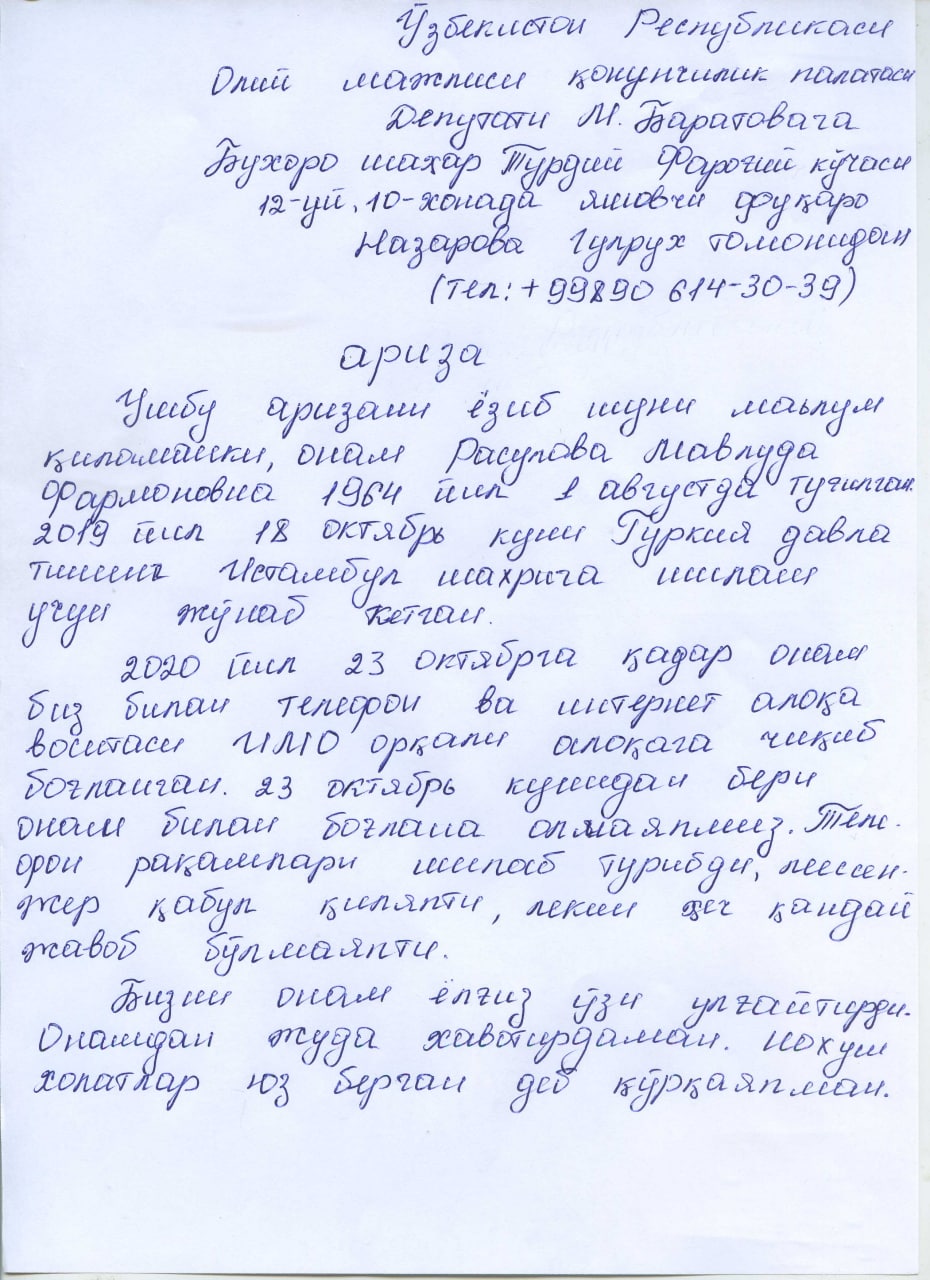 Ўзбекистон Республикаси
Олий мажлиси қонунчилик палатаси
Депутати М. Баратовага
Бухоро шаҳар Турдий Фароғий кўчаси
12-уй, 10-хонада яшовчи фуқаро
Назарова Гулрух томонидан
(тел: +99890 614-30-39)
ариза
Ушбу аризани ёзиб шуни маълум
қиламанки, онам Расулова Мавлуда
Фармоновна 1964 йил 1 августда туғилган.
2019 йил 18 октябрь куни Туркия давла
тининг Истамбул шахрига ишлаш
учун жўнаб кетган.
2020 йил 23 октябрга қадар онам
биз билан телефон ва интернет алоқа
воситаси ИМО орқали алоқага чиқиб
боғланган. 23 октябрь кунидан бери
онам билан боғлана олмаяпмиз. Теле-
фон рақамлари ишлаб турибди, мессен-
жер қабул қиляпти, лекин ҳеч қандай
жавоб бўлмаяпти.
Бизни онам ёлғиз ўзи улғайтирди.
Онамдан жуда хавотирдаман. Нохуш
холатлар юз берган деб қўрқаяпман.